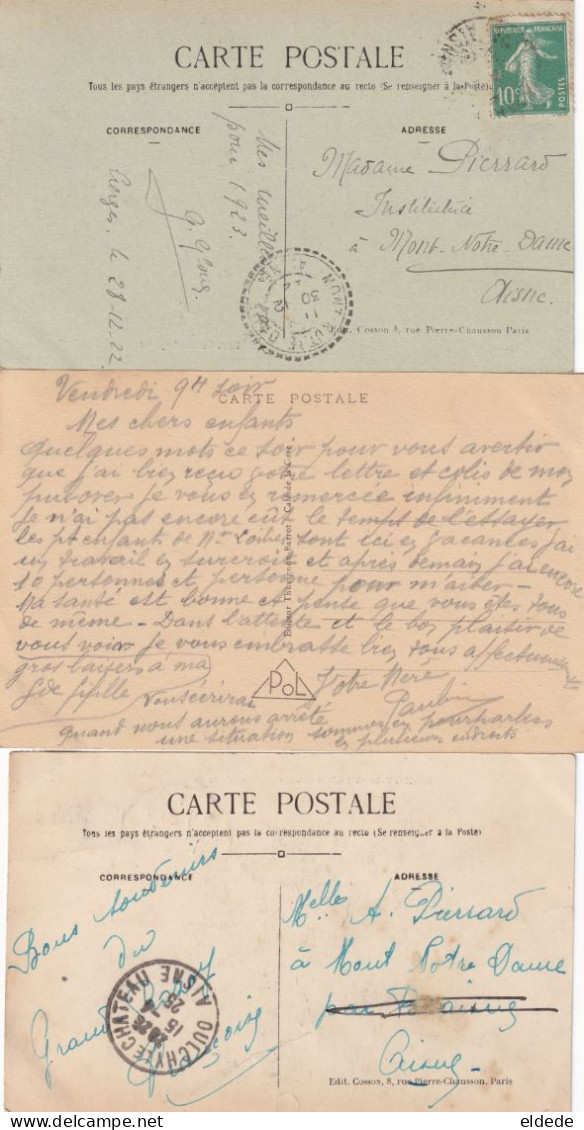 CARTE POSTALE
Tous les pays étrangers n'acceptent pas la correspondance au recto (Se renseigner à la Poste)
CORRESPONDANCE
ADRESSE
REPUBLIQUE FRANÇAISE
10c
POSTES
Mes meilleurs
pour 1923.
Cierges, le 28.12.22
Madame Pierrard
Institutrice
à Mont-Notre-Dame
Aisne.
Edit. Cosson 8, rue Pierre-Chausson Paris
Vendredi 9H soir
CARTE POSTALE
Mes chers enfants
Quelques mots ce soir pour vous avertir
que j'ai bien reçu votre lettre et colis de mon
pulover je vous en remercie infiniment
Je n'ai pas encore eût le temps de l'essayer
les pt enfant de Mme sont ici en vacances j'ai
un travail en surcroit et après demain j'ai encore
10 personnes et personne pour m'aider -
Ma santé est bonne et pense que vous êtes tous
de même - Dans l'attente et le bon plaisir de
vous voir je vous embrasse bien tous affectueusement
gros baisers à ma
Gde fifille
Votre Mère
Pauline
Vous écrirai
quand nous aurons arrêté
une situation sommes en pourparlers
en plusieurs endroits
PoL
CARTE POSTALE
Tous les pays étrangers n'acceptent pas la correspondance au recto (Se renseigner à la Poste)
CORRESPONDANCE
ADRESSE
Bons souvenirs
du
Grand
Françoise
OULCHY LE CHATEAU AISNE
15-4
25
Melle A. Pierrard
à Mont Notre Dame
par
Aisne
Edit. Cosson, 8, rue Pierre-Chausson, Paris
eldede